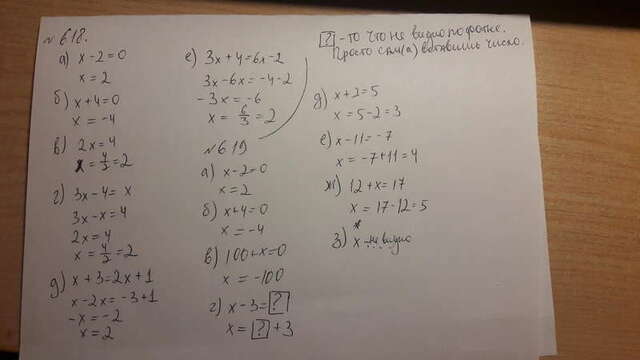 № 618.
а) x - 2 = 0
x = 2
б) x + 4 = 0
x = -4
в) 2x = 4
x = 4/2 = 2
г) 3x - 4 = x
3x - x = 4
2x = 4
x = 4/2 = 2
д) x + 3 = 2x + 1
x - 2x = -3 + 1
-x = -2
x = 2
е) 3x + 4 = 6x - 2
3x - 6x = -4 - 2
-3x = -6
x = 6/3 = 2
№ 619
а) x - 2 = 0
x = 2
б) x + 4 = 0
x = -4
в) 100 + x = 0
x = -100
г) x - 3 = ?
x = ? + 3
? - то что не видно по фотке.
Просто сам(а) вставишь число.
д) x + 2 = 5
x = 5 - 2 = 3
е) x - 11 = -7
x = -7 + 11 = 4
ж) 12 + x = 17
x = 17 - 12 = 5
з) x не видно